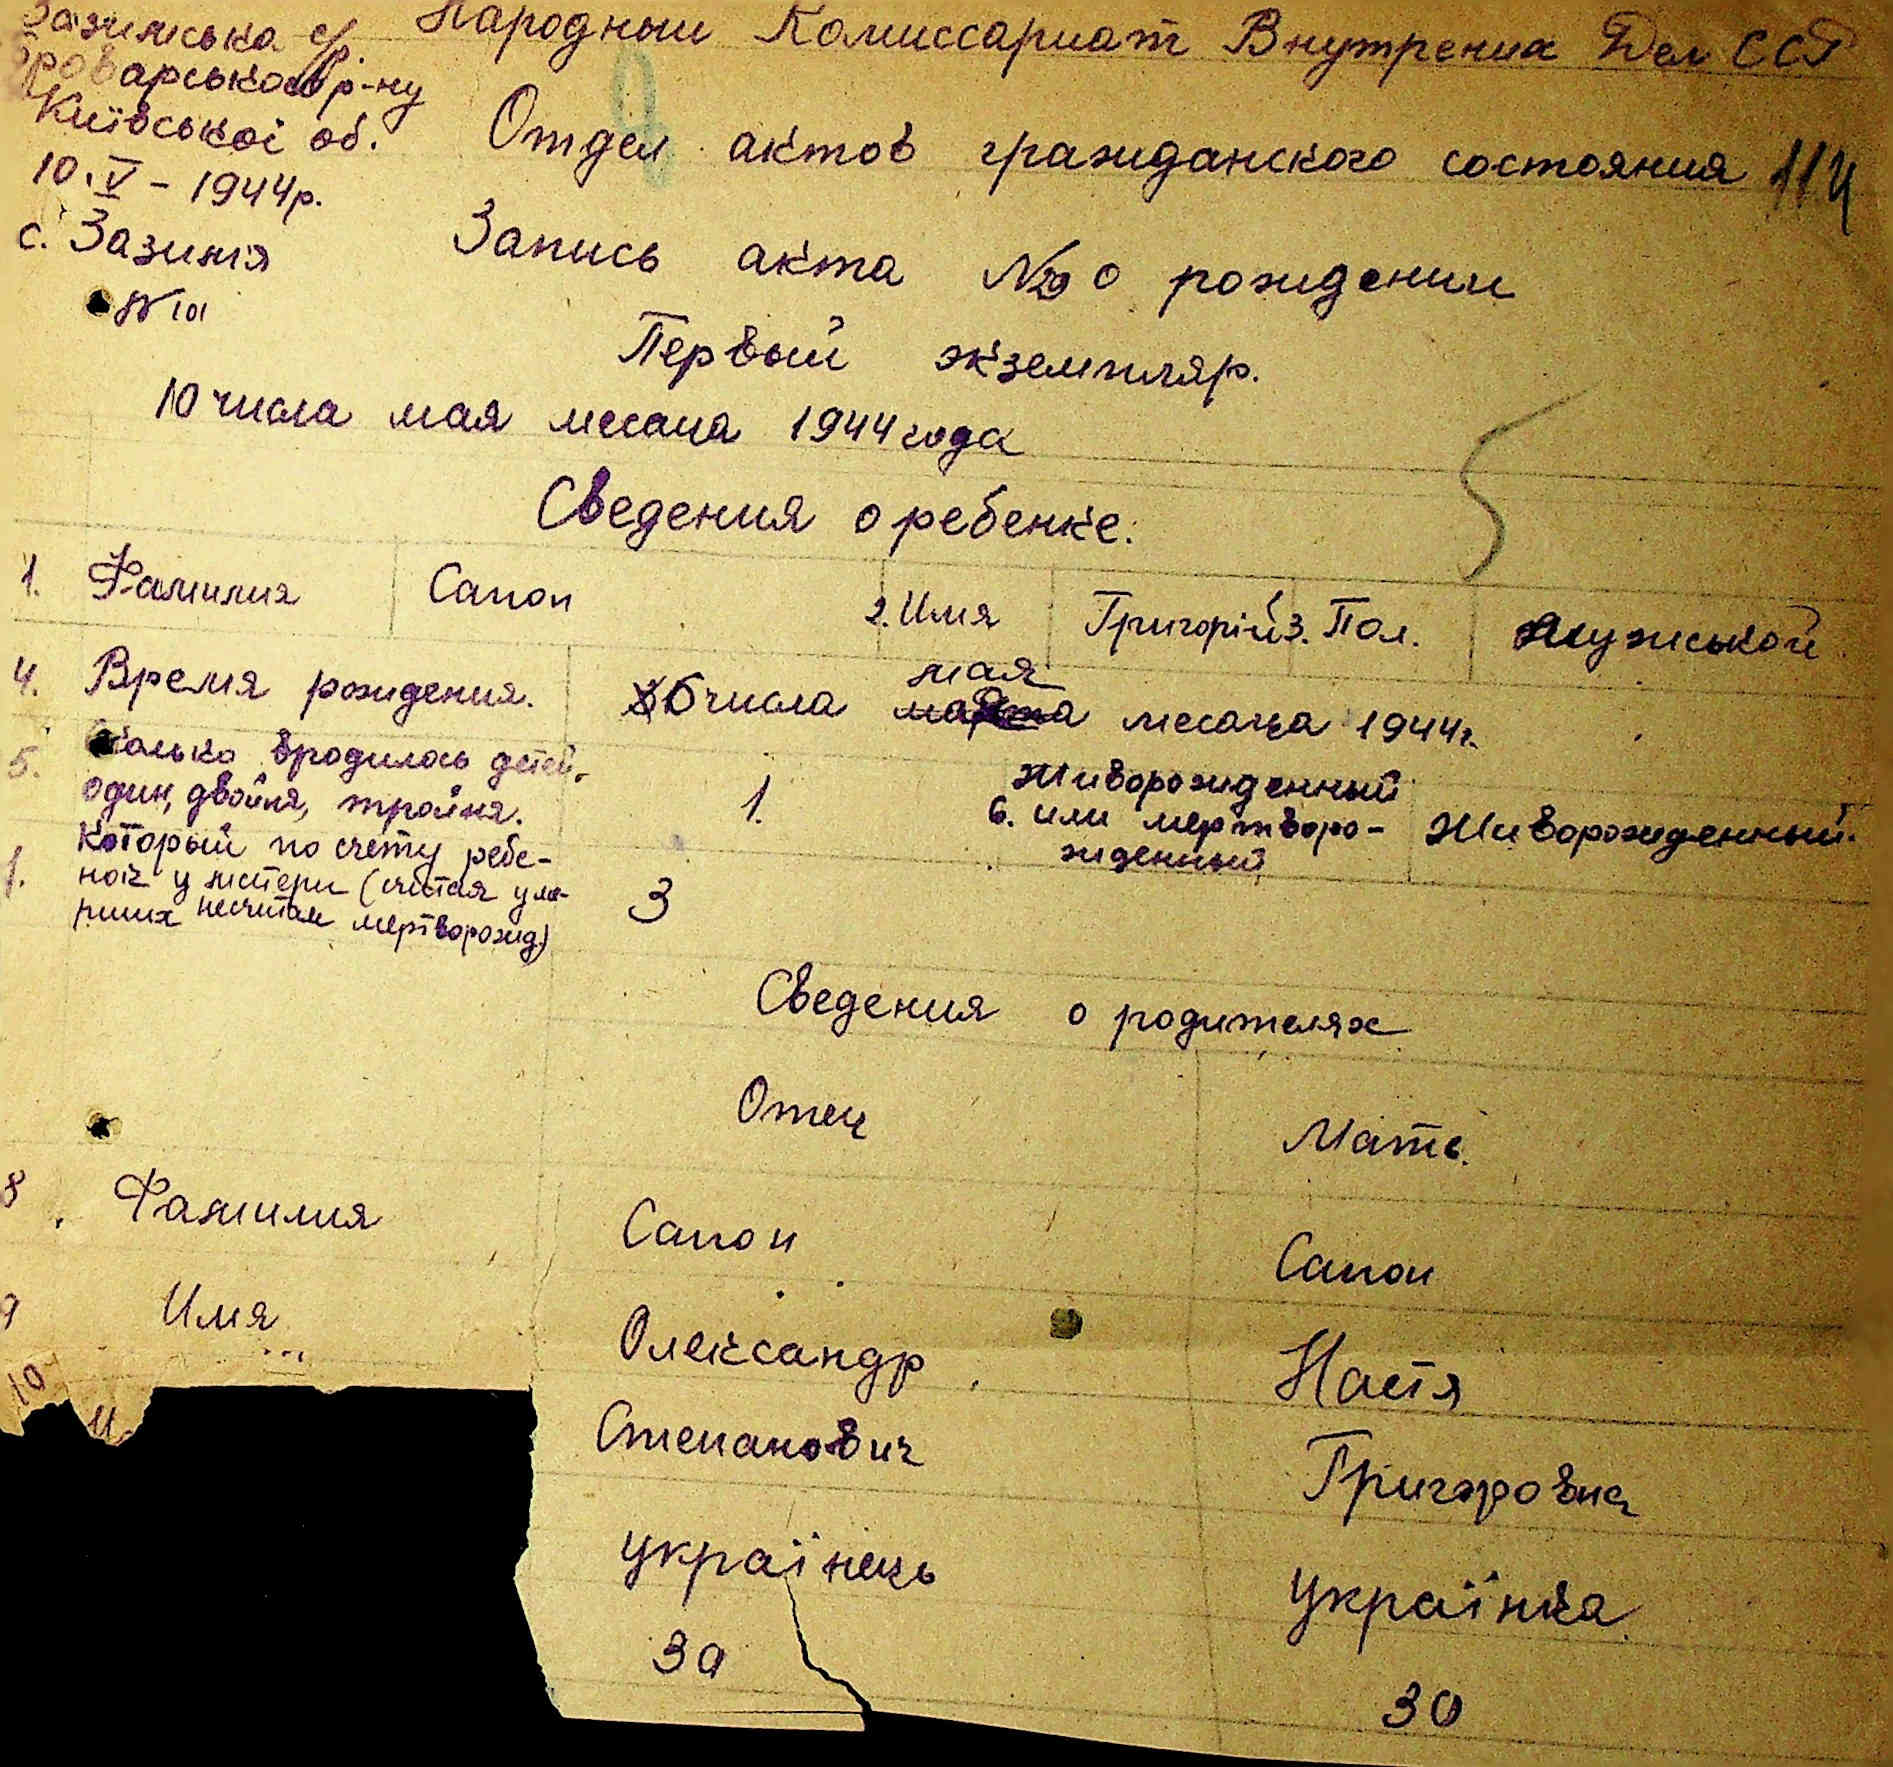 Зазимська с/р
Броварського р-ну
Київської об.
10.V - 1944р.
с. Зазимʼя
№ 101
Народный Комиссариат Внутрених Дел ССР
Отдел актов гражданского состояния 114
Запись акта № о рождении
Первый экземпляр.
10 числа мая месаца 1944 года
Сведения о ребенке.
1. Фамилия Сапон 2. Имя Григорій 3. Пол. мужськой
4. Время рождения. 6 числа мая месаца 1944г.
5. Сколько вродилось детей, один, двойня, тройня. 1.
6. Живорожденный или мертворо-
жденный Живорожденный.
Который по счету ребе-
нок у матери (считая уме-
рших несчитая мертворожд.) 3
Сведения о родителях
Отец Мать.
8. Фамилия Сапон Сапон
9 Имя Олександр Настя
10 Степанович Григоровна
11 українець українка
30 30